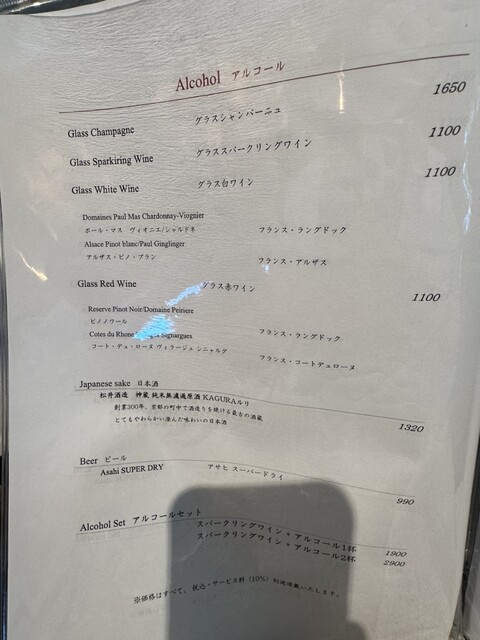 Alcohol アルコール
Glass Champagne グラスシャンパーニュ 1650
Glass Sparkiring Wine グラススパークリングワイン 1100
Glass White Wine グラス白ワイン 1100
Domaines Paul Mas Chardonnay-Viognier
ポール・マス ヴィオニエ/シャルドネ フランス・ラングドック
Alsace Pinot blanc/Paul Ginglinger
アルザス・ピノ・ブラン フランス・アルザス
Glass Red Wine グラス赤ワイン 1100
Reserve Pinot Noir/Domaine Peiriere
ピノノワール フランス・ラングドック
Cotes du Rhone Signargues
コート・デュ・ローヌ ヴィラージュ シニャルグ フランス・コートデュローヌ
Japanese sake 日本酒
松井酒造 神蔵 純米無濾過原酒 KAGURAルリ 1320
創業300年、京都の町中で酒造りを続ける最古の酒蔵
とてもやわらかい澄んだ味わいの日本酒
Beer ビール
Asahi SUPER DRY アサヒ スーパードライ 990
Alcohol Set アルコールセット
スパークリングワイン + アルコール1杯 1900
スパークリングワイン + アルコール2杯 2900
※価格はすべて、税込・サービス料（10%）別途頂戴いたします。